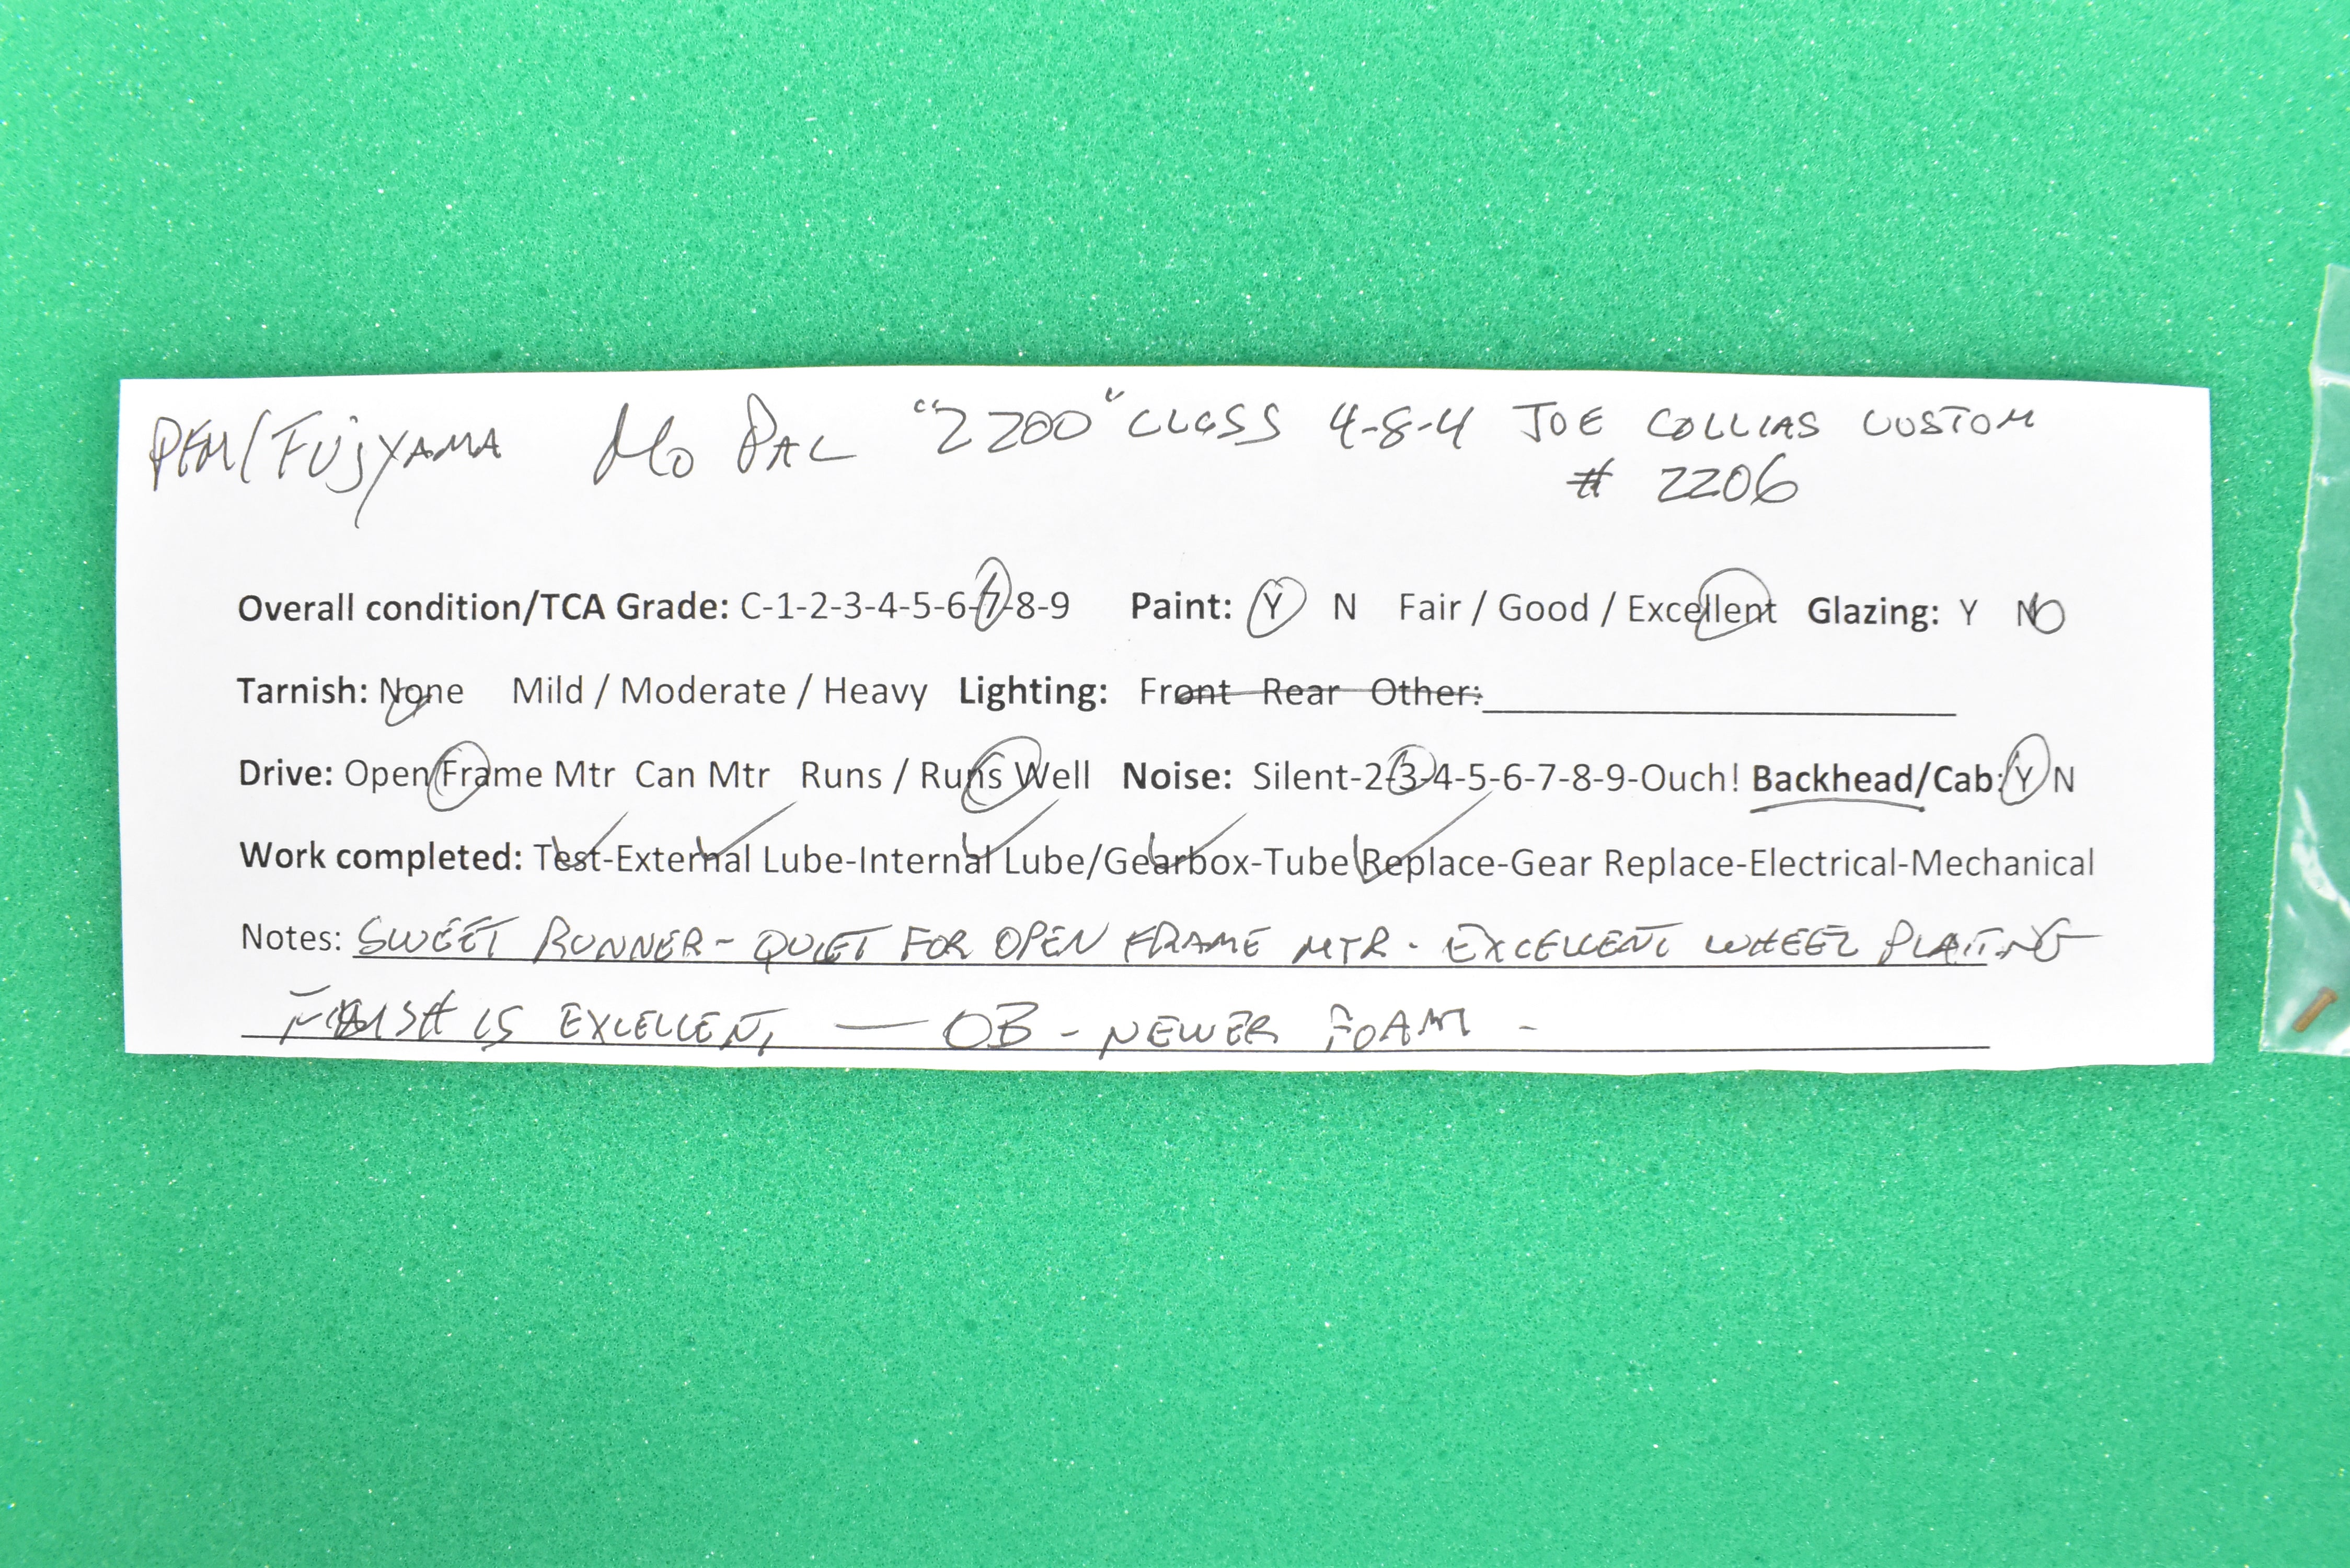 PFM/FUJIYAMA Mo PAC "2200" CLASS 4-8-4 JOE COLLIAS CUSTOM
# 2206
Overall condition/TCA Grade: C-1-2-3-4-5-6-7-8-9 Paint: Y N Fair / Good / Excellent Glazing: Y N
Tarnish: None Mild / Moderate / Heavy Lighting: Front Rear Other:
Drive: Open Frame Mtr Can Mtr Runs / Runs Well Noise: Silent-2-3-4-5-6-7-8-9-Ouch! Backhead/Cab: Y N
Work completed: Test-External Lube-Internal Lube/Gearbox-Tube Replace-Gear Replace-Electrical-Mechanical
Notes: SWEET RUNNER - QUIET FOR OPEN FRAME MTR - EXCELLENT WHEEL PLATING
FINISH IS EXCELLENT — OB - NEWER FOAM -